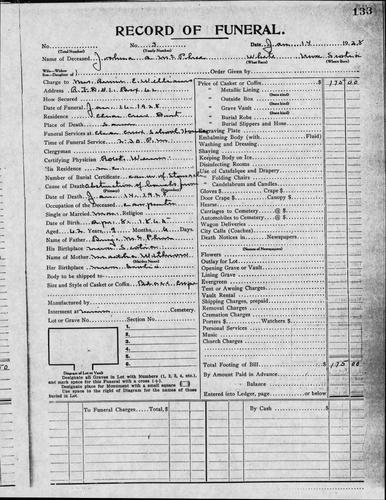 133
RECORD OF FUNERAL.
No. No. 3 Date Jan 14 1928
(Total Number) (Yearly Number)
Name of Deceased Joshua a. White Nova Scotia
(What Race) (Where Born)
Wife—Widow
Son—Daughter of Order Given by
Charge to Mrs. Annie E. Williams
Address R.F.D. #1. Box 62
How Secured
Date of Funeral Jan 16 - 1928
Residence
Place of Death
Funeral Services at School House
Time of Funeral Service 2:30 P.m.
Clergyman
Certifying Physician
His Residence
Number of Burial Certificate
Cause of Death
(Primary)
Date of Death Jan 14. 1928
Occupation of the Deceased Carpenter
Single or Married Religion
Date of Birth Apr. 8. 1865
Aged 62 Years 9 Months 6 Days
Name of Father
His Birthplace Nova Scotia
Name of Mother
(Maiden Name)
Her Birthplace Nova Scotia
Body to be shipped to
Size and Style of Casket or Coffin
Manufactured by
Interment at Cemetery.
Lot or Grave No. Section No.
1.
2.
3.
4.
5.
6.
7.
8.
Diagram of Lot or Vault
Designate all Graves in Lot with Numbers (1, 2, 3, 4, etc.),
and mark space for this Funeral with a cross (+).
Designate place for Monument with a small square
Use space to the right of Diagram for the names of those
buried in Lot.
Price of Casket or Coffin $ 175 00
(State kind)
" Metallic Lining
" Outside Box
(State kind)
" Grave Vault
(State kind)
" Burial Robe
(State kind)
" Burial Slippers and Hose
Engraving Plate
Embalming Body (with Fluid)
Washing and Dressing
Shaving
Keeping Body on Ice
Disinfecting Rooms
Use of Catafalque and Drapery
" Folding Chairs
" Candelabrum and Candles
Gloves $ Crape $
Door Crape $ Canopy $
Hearse
Carriages to Cemetery @ $
Automobiles to Cemetery @ $
Wagon Deliveries
City Calls (Coaches)
Death Notices in Newspapers
(Names of Newspapers)
Flowers
Outlay for Lot
Opening Grave or Vault
Lining Grave
Evergreen
Tent or Awning Charges
Vault Rental
Shipping Charges, prepaid
Removal Charges
Cremation Charges
Porters $ Watchers $
Personal Services
Music
Church Charges
Total Footing of Bill $ 175 00
By Amount Paid in Advance
" Balance
Entered into Ledger, page or below.
To Funeral Charges Total, $
By Cash $